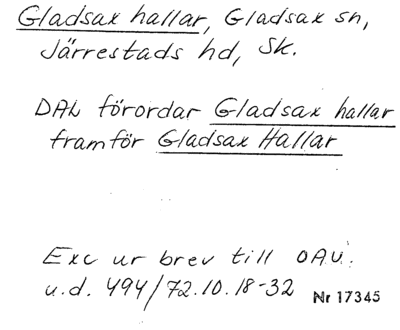 Gladsax hallar, Gladsax sn,
Järrestads hd, Sk.
DAL förordar Gladsax hallar
framför Gladsax Hallar
Exc ur brev till OAU.
u.d. 494/72.10.18-32 Nr 17345